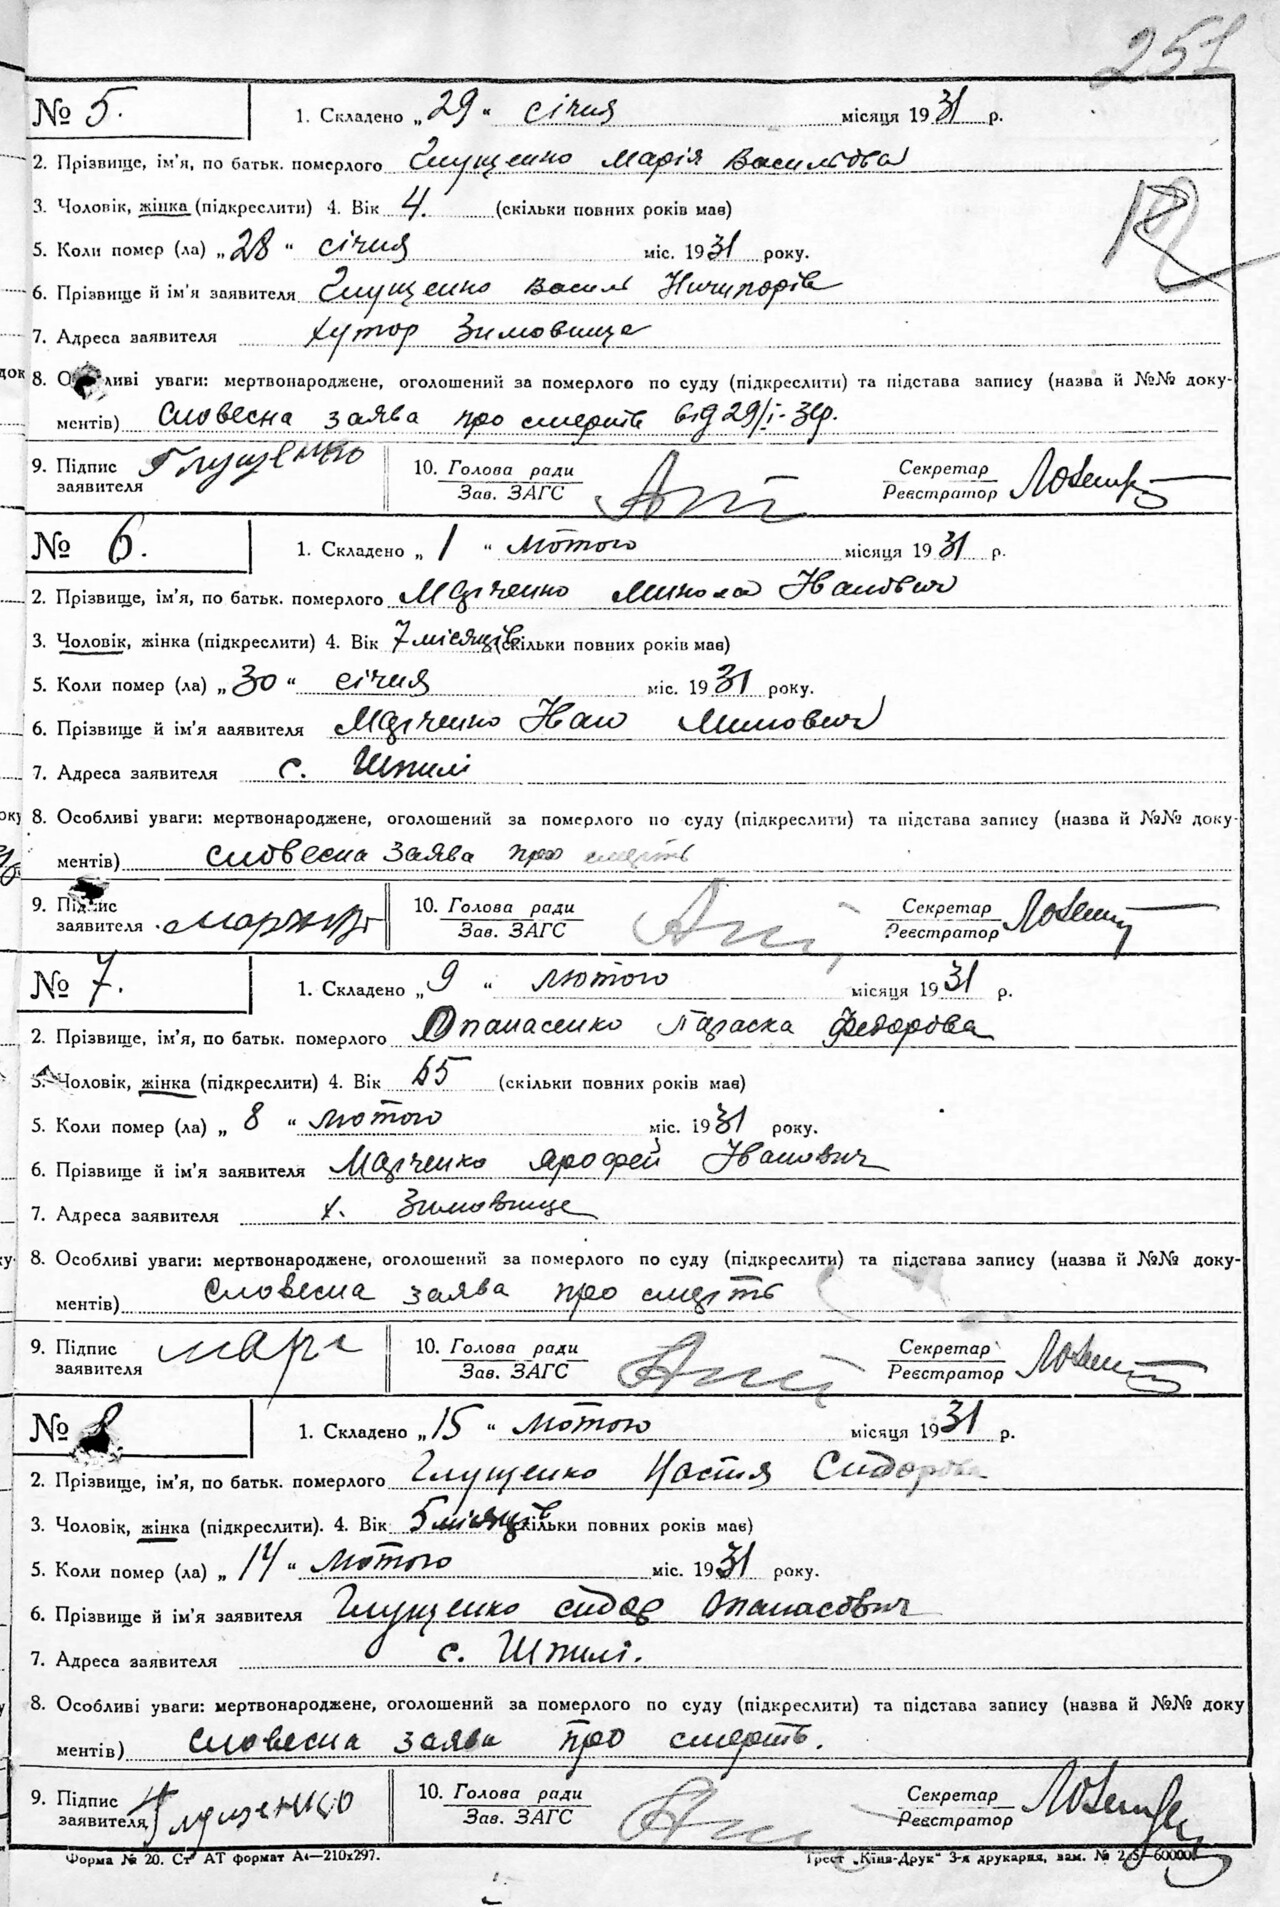 251
№ 5.
1. Складено „29“ січня місяця 1931 р.
2. Прізвище, ім'я, по батьк. померлого Глущенко Марія Васильова
3. Чоловік, жінка (підкреслити) 4. Вік 4. (скільки повних років має)
5. Коли помер (ла) „28“ січня міс. 1931 року.
6. Прізвище й ім'я заявителя Глущенко Василь Ничипорів
7. Адреса заявителя хутор Зимовище
8. Особливі уваги: мертвонароджене, оголошений за померлого по суду (підкреслити) та підстава запису (назва й №№ доку-
ментів) словесна заява про смерть від 29/I-31р.
9. Підпис заявителя Глущенко 10. Голова ради Зав. ЗАГС Секретар Реєстратор
№ 6.
1. Складено „1“ лютого місяця 1931 р.
2. Прізвище, ім'я, по батьк. померлого Марченко Микола Іванович
3. Чоловік, жінка (підкреслити) 4. Вік 7 місяців (скільки повних років має)
5. Коли помер (ла) „30“ січня міс. 1931 року.
6. Прізвище й ім'я заявителя Марченко Іван Минович
7. Адреса заявителя с. Шпилі
8. Особливі уваги: мертвонароджене, оголошений за померлого по суду (підкреслити) та підстава запису (назва й №№ доку-
ментів) словесна заява про смерть
9. Підпис заявителя 10. Голова ради Зав. ЗАГС Секретар Реєстратор
№ 7.
1. Складено „9“ лютого місяця 1931 р.
2. Прізвище, ім'я, по батьк. померлого Опанасенко Параска Федорова
3. Чоловік, жінка (підкреслити) 4. Вік 55 (скільки повних років має)
5. Коли помер (ла) „8“ лютого міс. 1931 року.
6. Прізвище й ім'я заявителя Марченко Ярофей Іванович
7. Адреса заявителя х. Зимовище
8. Особливі уваги: мертвонароджене, оголошений за померлого по суду (підкреслити) та підстава запису (назва й №№ доку-
ментів) словесна заява про смерть
9. Підпис заявителя марч 10. Голова ради Зав. ЗАГС Секретар Реєстратор
№ 8.
1. Складено „15“ лютого місяця 1931 р.
2. Прізвище, ім'я, по батьк. померлого Глущенко Настя Сидорова
3. Чоловік, жінка (підкреслити). 4. Вік 5 місяців (скільки повних років має)
5. Коли помер (ла) „14“ лютого міс. 1931 року.
6. Прізвище й ім'я заявителя Глущенко Сидор Опанасович
7. Адреса заявителя с. Шпилі.
8. Особливі уваги: мертвонароджене, оголошений за померлого по суду (підкреслити) та підстава запису (назва й №№ доку
ментів) словесна заява про смерть.
9. Підпис заявителя Глущенко 10. Голова ради Зав. ЗАГС Секретар Реєстратор
Форма № 20. Ст АТ формат А4—210х297.
Трест „Київ-Друк“ 3-я друкарня, зам. №